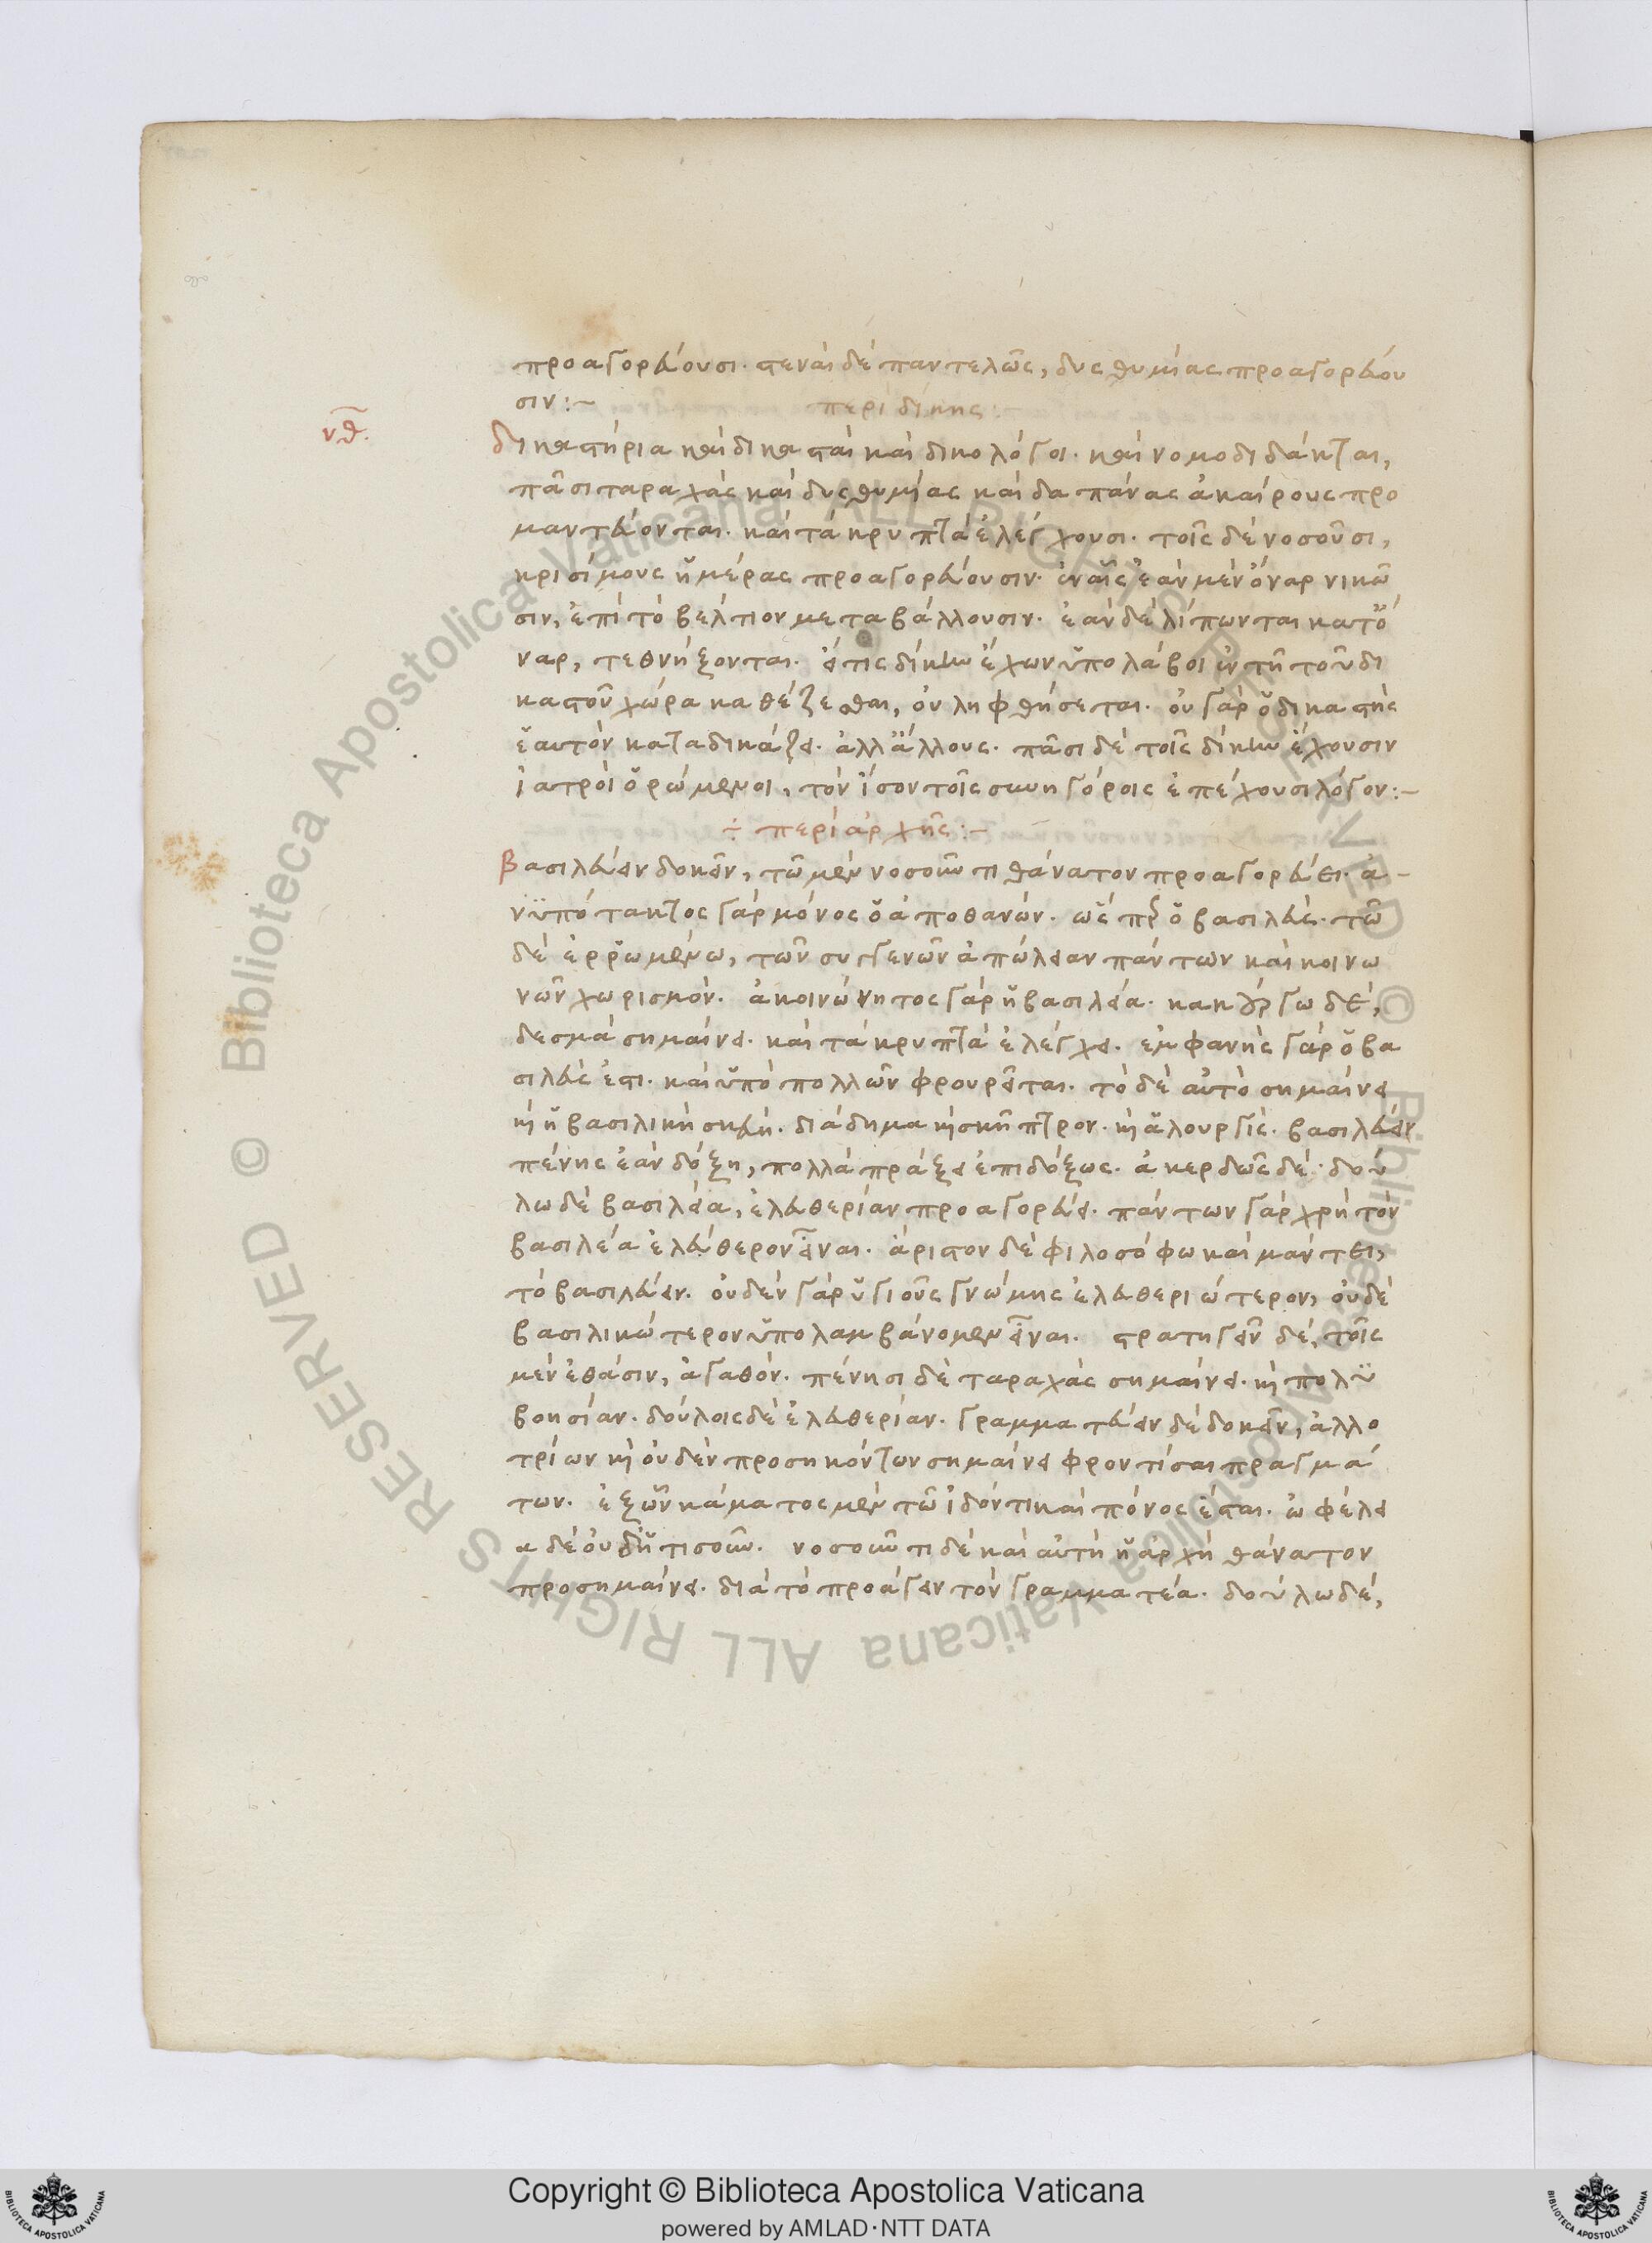 προαγορεύουσι. στεναὶ δὲ παντελῶς, δυσθυμίας προαγορεύου
σιν:~ περὶ δίκης:
νθ.
δικαστήρια καὶ δικασταὶ καὶ δικολόγοι. καὶ νομοδιδάκται,
πᾶσι ταραχὰς καὶ δυσθυμίας καὶ δαπάνας ἀκαίρους προ
μαντεύονται. καὶ τὰ κρυπτὰ ἐλέγχουσι. τοῖς δὲ νοσοῦσι,
κρισίμους ἡμέρας προαγορεύουσιν. ἐν αἷς ἐὰν μὲν ὄναρ νικῶ
σιν, ἐπὶ τὸ βέλτιον μεταβάλλουσιν. ἐὰν δὲ λίπωνται κατ' ὄ
ναρ, τεθνήξονται. εἴ τις δίκην ἔχων ὑπολάβοι ἐν τῆ τοῦ δι
καστοῦ χώρα καθέζεσθαι, οὐ ληφθήσεται. οὐ γὰρ ὁ δικαστὴς
ἑαυτὸν καταδικάζει. ἀλλ' ἄλλους. πᾶσι δὲ τοῖς δίκην ἔχουσιν
ἰατροὶ ὁρώμενοι, τὸν ἴσον τοῖς συνηγόροις ἐπέχουσι λόγον:~
÷ περὶ ἀρχῆς:~
βασιλεύειν δοκεῖν, τῶ μὲν νοσοῦντι θάνατον προαγορεύει. ἀ-
νϋπότακτος γὰρ μόνος ὁ ἀποθανών. ὡς περ ὁ βασιλεύς. τῶ
δὲ ἐρρωμένω, τῶν συγγενῶν ἀπώλειαν πάντων καὶ κοινω
νῶν χωρισμόν. ἀκοινώνητος γὰρ ἡ βασιλεία. κακούργω δὲ,
δεσμὰ σημαίνει. καὶ τὰ κρυπτὰ ἐλέγχει. ἐμφανὴς γὰρ ὁ βα
σιλεύς ἐστι. καὶ ὑπὸ πολλῶν φρουρεῖται. τὸ δὲ αὐτὸ σημαίνει
κὶ ἡ βασιλικὴ σκευή. διάδημα κὶ σκῆπτρον. κὶ ἁλουργίς. βασιλεύειν
πένης ἐὰν δόξη, πολλὰ πράξει ἐπιδόξως. ἀκερδῶς δέ. δού
λω δὲ βασιλεία, ἐλευθερίαν προαγορεύει. πάντων γὰρ χρὴ τὸν
βασιλέα ἐλεύθερον εἶναι. ἄριστον δὲ φιλοσόφω καὶ μάντει,
τὸ βασιλεύειν. οὐδὲν γὰρ ὑγιοῦς γνώμης ἐλευθεριώτερον, οὐδὲ
βασιλικώτερον ὑπολαμβάνομεν εἶναι. στρατηγεῖν δὲ, τοῖς
μὲν ἐθάσιν, ἀγαθόν. πένησι δὲ ταραχὰς σημαίνει. κὶ πολυ
βοησίαν. δούλοις δὲ ἐλευθερίαν. γραμματεύειν δὲ δοκεῖν, ἀλλο
τρίων κὶ οὐδὲν προσηκόντων σημαίνει φροντίσαι πραγμά
των. ἐξ ὧν κάματος μὲν τῶ ἰδόντι καὶ πόνος ἔσται. ὠφέλει
α δὲ οὐδ' ἥτις οὖν. νοσοῦντι δὲ καὶ αὐτὴ ἡ ἀρχὴ θάνατον
προσημαίνει. διὰ τὸ προάγειν τὸν γραμματέα. δούλω δὲ,
Copyright © Biblioteca Apostolica Vaticana
powered by AMLAD·NTT DATA